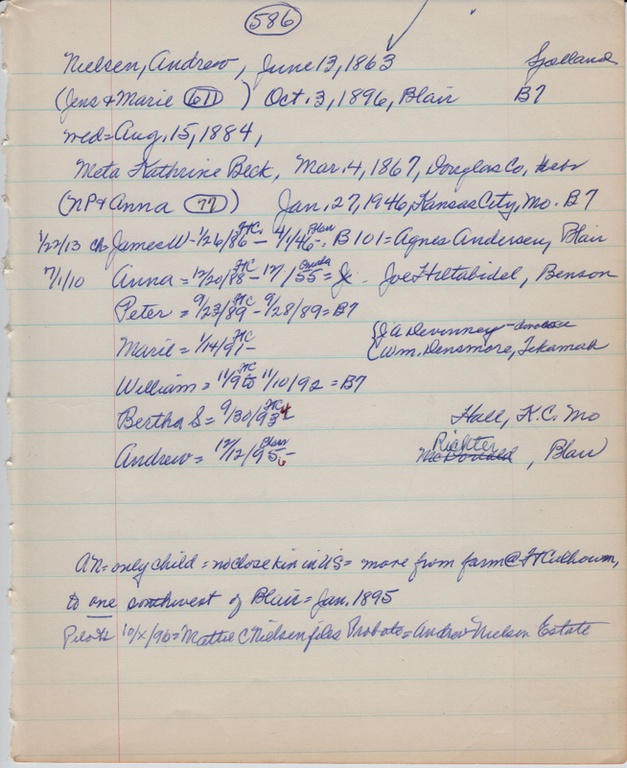 586
Nielsen, Andrew, June 13, 1863 Sjolland
(Jens & Marie 611) Oct. 3, 1896, Blair B7
wed = Aug. 15, 1884,
Meta Kathrine Beck, Mar. 4, 1867, Douglas Co, Nebr
(NP & Anna 77) Jan. 27, 1946, Kansas City, Mo. B7
1/22/13 ch James W - 1/26/86 FtC - 4/1/46 Blair. B101 = Agnes Andersen, Blair
7/1/10 Anna = 12/20/88 FtC - 12/ /55 Omaha = Joe Hiltabidel, Benson
Peter = 9/23/89 FtC - 9/28/89 = B7
Marie = 1/14/91 FtC - (J A Devinney - divorce
(Wm. Densmore, Tekamah
William = 11/ /92 FtC 11/10/92 = B7
Bertha S = 9/30/93 FtC 4 - Hall, K.C. Mo
Andrew = 12/12/95 Blair 6 - Richter, Blair
AN = only child = no close kin in US = move from farm @ Ft Culhoum,
to one southwest of Blair = Jan. 1895
Pilot 10/x/96 = Mattie C Nielsen files Probate = Andrew Nielsen Estate